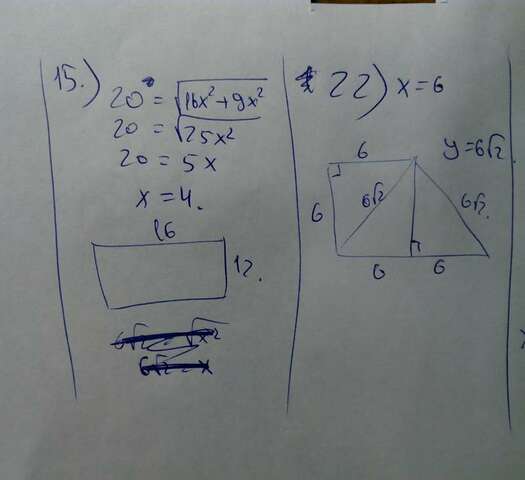 15.)
20 = √16x²+9x²
20 = √25x²
20 = 5x
x = 4.
16
12.
6√2 = √x²
6√2 = x
22) x = 6
6
y = 6√2
6
6√2
6√2.
6
6